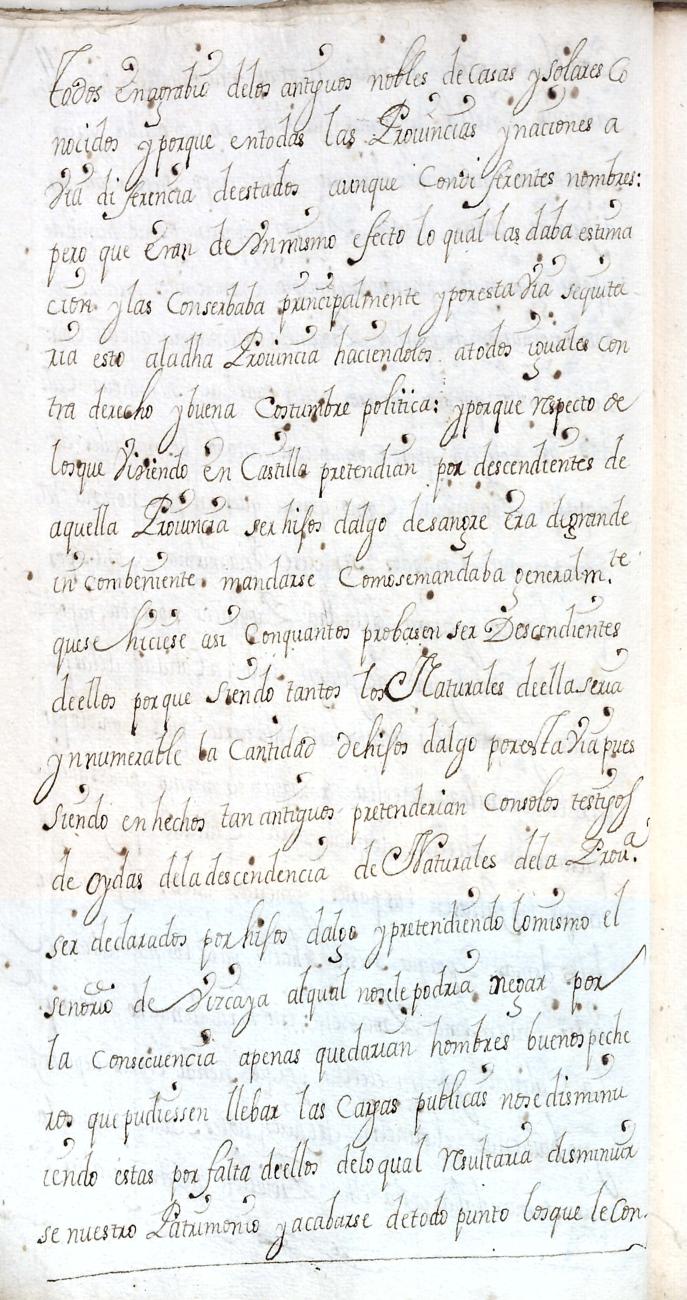 todos En agrabio delos antiguos nobles de Casas y Solares Co
nocidos y porque entodas las Prouincias y naciones a
Via diferencia deestados aunque Condiferentes nombres:
pero que Eran de Vnmismo efecto lo qual las daba estima
cion y las Conserbaba principalmente y poresta Via sequita
ria esto aladha Prouincia haciendolos atodos iguales Con
tra derecho y buena Costumbre politica: y porque respecto de
losque Viniendo En Castilla pretendian por descendientes de
aquella Prouincia ser hijos dalgo desangre Era degrande
inCombeniente mandarse Comosemandaba generalm.te
quese hiciese asi Conquantos probasen ser Descendientes
deellos porque Siendo tantos los Naturales deella seria
ynnumerable la Cantidad dehijos dalgo poresta Via pues
Siendo enhechos tan antiguos pretenderian Consolos testigos
de oydas dela descendencia de Naturales dela Prou.a
ser declarados por hijos dalgo y pretendiendo lo mismo el
señorio de Vizcaya alqual nosele podria negar por
la Consecuencia apenas quedarian hombres buenos peche
ros que pudiessen llebar las Cargas publicas nose disminu
iendo estas por falta deellos delo qual resultaria disminuir
se nuestro Patrimonio y acabarse detodo punto losque le Con-